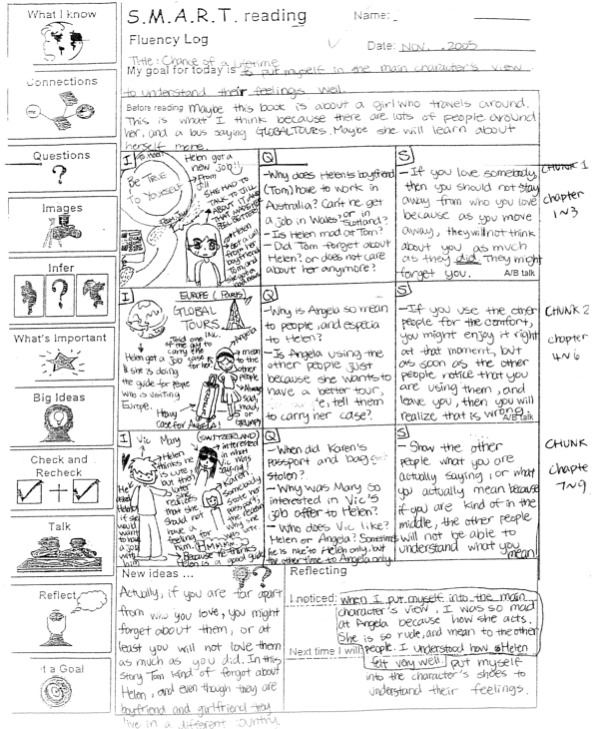 What I know
Connections
Questions
Images
Infer
What's Important
Big Ideas
Check and
Recheck
Talk
Reflect
t a Goal
S.M.A.R.T. reading
Name:
Fluency Log
Date: Nov. , 2005
Title: Chance of a Lifetime
My goal for today is to put myself in the main character's view
to understand their feelings well.
Before reading Maybe this book is about a girl who travels around.
This is what I think because there are lots of people around
her, and a bus saying GLOBAL TOURS. Maybe she will learn about
herself more.
I
Be TRUE
To YOURSELF
Helen got a
new job!!
From
Jill
SHE HAD TO
TALK TO JILL
ABOUT IT AND
Helen
Got a call
from her
boyfriend
Tom, and
Q
-Why does Helen's boyfriend
(Tom) have to work in
Australia? Can't he get
a job in Wales, or in
Scotland?
- Is Helen mad at Tom?
- Did Tom forget about
Helen? or does not care
about her anymore?
S
- If you love somebody,
then you should not stay
away from who you love
because as you move
away, they will not think
about you as much
as they did. They might
forget you.
A/B talk
CHUNK 1
chapter
1~3
I
EUROPE (Paris)
GLOBAL
TOURS
INC.
Told one
of the guy to
carry the
case for her.
Angela
mean
to the
other
people
Always
sad,
mad,
or
grumpy
Helen got a job
she is doing
the guide for people
who is visiting
Europe.
Heavy
case for Angela!
Q
-Why is Angela so mean
to people, and especia
to Helen?
- Is Angela using the
other people just
because she wants to
have a better tour,
e, tell them
to carry her case?
S
-If you use the other
people for the comfort,
you might enjoy it right
at that moment, but
as soon as the other
people notice that you
are using them, and
leave you, then you will
realize that is wrong.
A/B talk
CHUNK 2
chapter
4~6
I
Vic Mary
(SWITZERLAND)
Helen
thinks he
is cute,
but then
later she
realizes
that she
should not
have a
feeling for
him.
interested
in what
Vic was
saying
Karen
Somebody
stole
her
passport
Because he thinks
Helen is a good guide
Q
- When did Karen's
passport and bag get
stolen?
- Why was Mary so
interested in Vic's
job offer to Helen?
- Who does Vic like?
Helen or Angela? Sometimes
he is nice to Helen only, but
the other time to Angela only.
S
- Show the other
people what you are
actually saying, or what
you actually mean because
if you are kind of in the
middle, the other people
will not be able to
understand what you
mean!
CHUNK
chapte
7~9
New ideas ...
Actually, if you are far apart
from who you love, you might
forget about them, or at
least you will not love them
as much as you did. In this
story Tom kind of forgot about
Helen, and even though they are
boyfriend and girlfriend they
live in a different country.
Reflecting
I noticed: when I put myself into the main
character's view, I was so mad
at Angela because how she acts.
She is so rude, and mean to the other
people. I understood how Helen
felt very well.
Next time I will put myself
into the character's shoes to
understand their feelings.